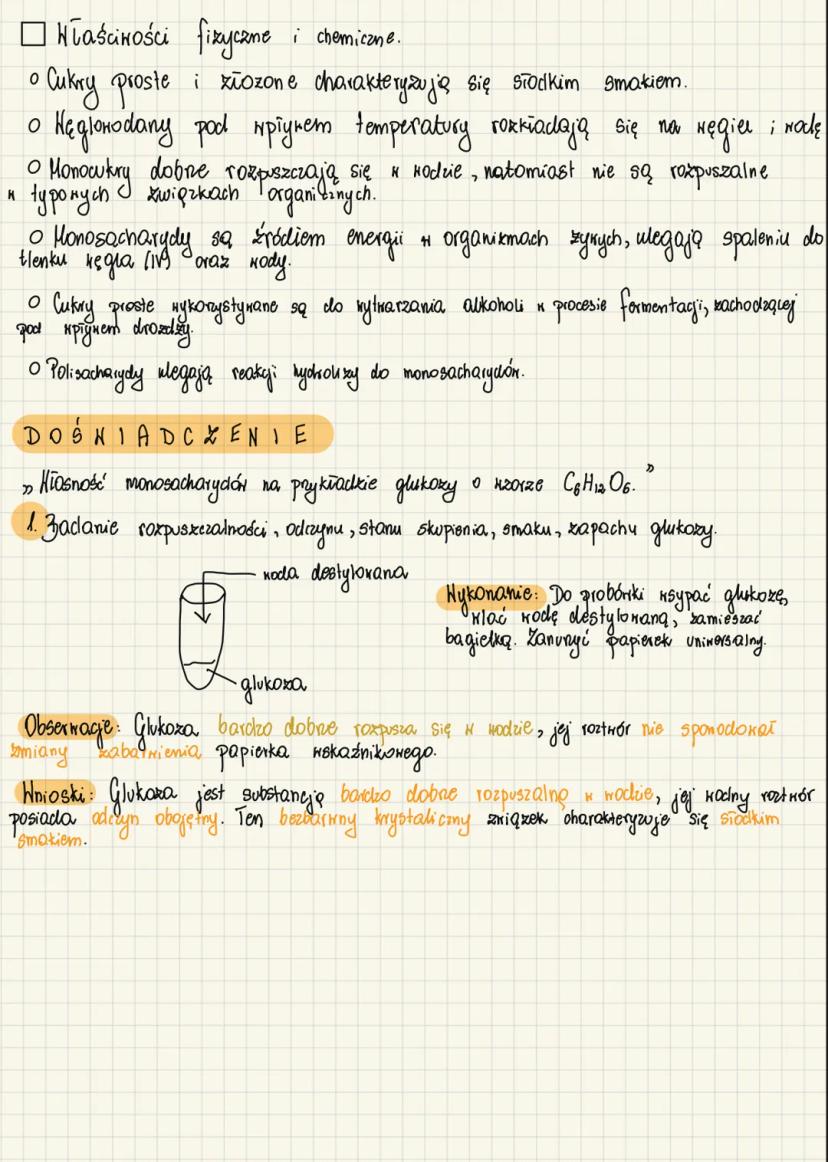 Właściwości fizyczne i chemiczne.
Cukry proste i złożone charakteryzują się słodkim smakiem.
Węglowodany pod wpływem temperatury rozkładają się na węgiel i wodę
Monocukry dobrze rozpuszczają się w wodzie, natomiast nie są rozpuszalne
w typowych związkach organicznych.
Monosacharydy są źródłem energii w organizmach żywych, ulegają spaleniu do
tlenku węgla (IV) oraz wody.
Cukry proste wykorzystywane są do wytwarzania alkoholi w procesie fermentacji, zachodzącej
pod wpływem drożdży.
Polisacharydy ulegają reakcji hydrolizy do monosacharydów.
DOŚWIADCZENIE
„Własność monosacharydów na przykładzie glukozy o wzorze C₆H₁₂O₆."
1. Badanie rozpuszczalności, odczynu, stanu skupienia, smaku, zapachu glukozy.
woda destylowana
glukoza
Wykonanie: Do probówki wsypać glukozę,
wlać wodę destylowaną, zamieszać
bagietką. Zanurzyć papierek uniwersalny.
Obserwacje: Glukoza bardzo dobrze rozpusza się w wodzie, jej roztwór nie spowodował
zmiany zabarwienia papierka wskaźnikowego.
Wnioski: Glukoza jest substancją bardzo dobrze rozpuszalną w wodzie, jej wodny roztwór
posiada odczyn obojętny. Ten bezbarwny krystaliczny związek charakteryzuje się słodkim
smakiem.